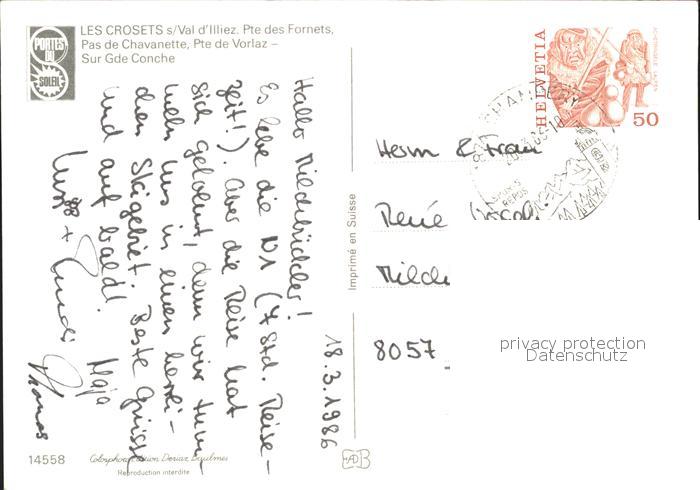 LES CROSETS s/Val d'Illiez. Pte des Fornets,
Pas de Chavanette, Pte de Vorlaz –
Sur Gde Conche
PORTES
DU
SOLEIL
HELVETIA
50
18.3.1986
Hallo
Es lebe die N1 (7 Std. Reise-
zeit!). Aber die Reise hat
sich gelohnt, denn wir tum-
meln uns in einem herrli-
chen Skigebiet. Beste Grüsse
und auf bald!
Maja
Thomas
Herrn & Frau
René
8057
Imprimé en Suisse
privacy protection
Datenschutz
14558
Reproduction interdite